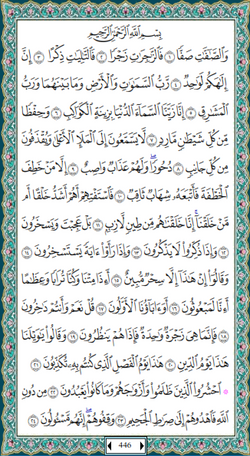 بِسْمِ ٱللَّهِ ٱلرَّحْمَٰنِ ٱلرَّحِيمِ
وَٱلصَّٰٓفَّٰتِ صَفًّا ١ فَٱلزَّٰجِرَٰتِ زَجْرًا ٢ فَٱلتَّٰلِيَٰتِ ذِكْرًا ٣ إِنَّ
إِلَٰهَكُمْ لَوَٰحِدٌ ٤ رَّبُّ ٱلسَّمَٰوَٰتِ وَٱلْأَرْضِ وَمَا بَيْنَهُمَا وَرَبُّ
ٱلْمَشَٰرِقِ ٥ إِنَّا زَيَّنَّا ٱلسَّمَآءَ ٱلدُّنْيَا بِزِينَةٍ ٱلْكَوَاكِبِ ٦ وَحِفْظًا
مِّن كُلِّ شَيْطَٰنٍ مَّارِدٍ ٧ لَّا يَسَّمَّعُونَ إِلَى ٱلْمَلَإِ ٱلْأَعْلَىٰ وَيُقْذَفُونَ
مِن كُلِّ جَانِبٍ ٨ دُحُورًا ۖ وَلَهُمْ عَذَابٌ وَاصِبٌ ٩ إِلَّا مَنْ خَطِفَ
ٱلْخَطْفَةَ فَأَتْبَعَهُۥ شِهَابٌ ثَاقِبٌ ١٠ فَٱسْتَفْتِهِمْ أَهُمْ أَشَدُّ خَلْقًا أَم
مَّنْ خَلَقْنَآ ۚ إِنَّا خَلَقْنَٰهُم مِّن طِينٍ لَّازِبٍ ١١ بَلْ عَجِبْتَ وَيَسْخَرُونَ
١٢ وَإِذَا ذُكِّرُوا۟ لَا يَذْكُرُونَ ١٣ وَإِذَا رَأَوْا۟ ءَايَةً يَسْتَسْخِرُونَ ١٤
وَقَالُوٓا۟ إِنْ هَٰذَآ إِلَّا سِحْرٌ مُّبِينٌ ١٥ أَءِذَا مِتْنَا وَكُنَّا تُرَابًا وَعِظَٰمًا
أَءِنَّا لَمَبْعُوثُونَ ١٦ أَوَءَابَآؤُنَا ٱلْأَوَّلُونَ ١٧ قُلْ نَعَمْ وَأَنتُمْ دَٰخِرُونَ
١٨ فَإِنَّمَا هِىَ زَجْرَةٌ وَٰحِدَةٌ فَإِذَا هُمْ يَنظُرُونَ ١٩ وَقَالُوا۟ يَٰوَيْلَنَا
هَٰذَا يَوْمُ ٱلدِّينِ ٢٠ هَٰذَا يَوْمُ ٱلْفَصْلِ ٱلَّذِى كُنتُم بِهِۦ تُكَذِّبُونَ ٢١
۞ ٱحْشُرُوا۟ ٱلَّذِينَ ظَلَمُوا۟ وَأَزْوَٰجَهُمْ وَمَا كَانُوا۟ يَعْبُدُونَ ٢٢ مِن دُونِ
ٱللَّهِ فَٱهْدُوهُمْ إِلَىٰ صِرَٰطِ ٱلْجَحِيمِ ٢٣ وَقِفُوهُمْ ۖ إِنَّهُم مَّسْـُٔولُونَ ٢٤
446